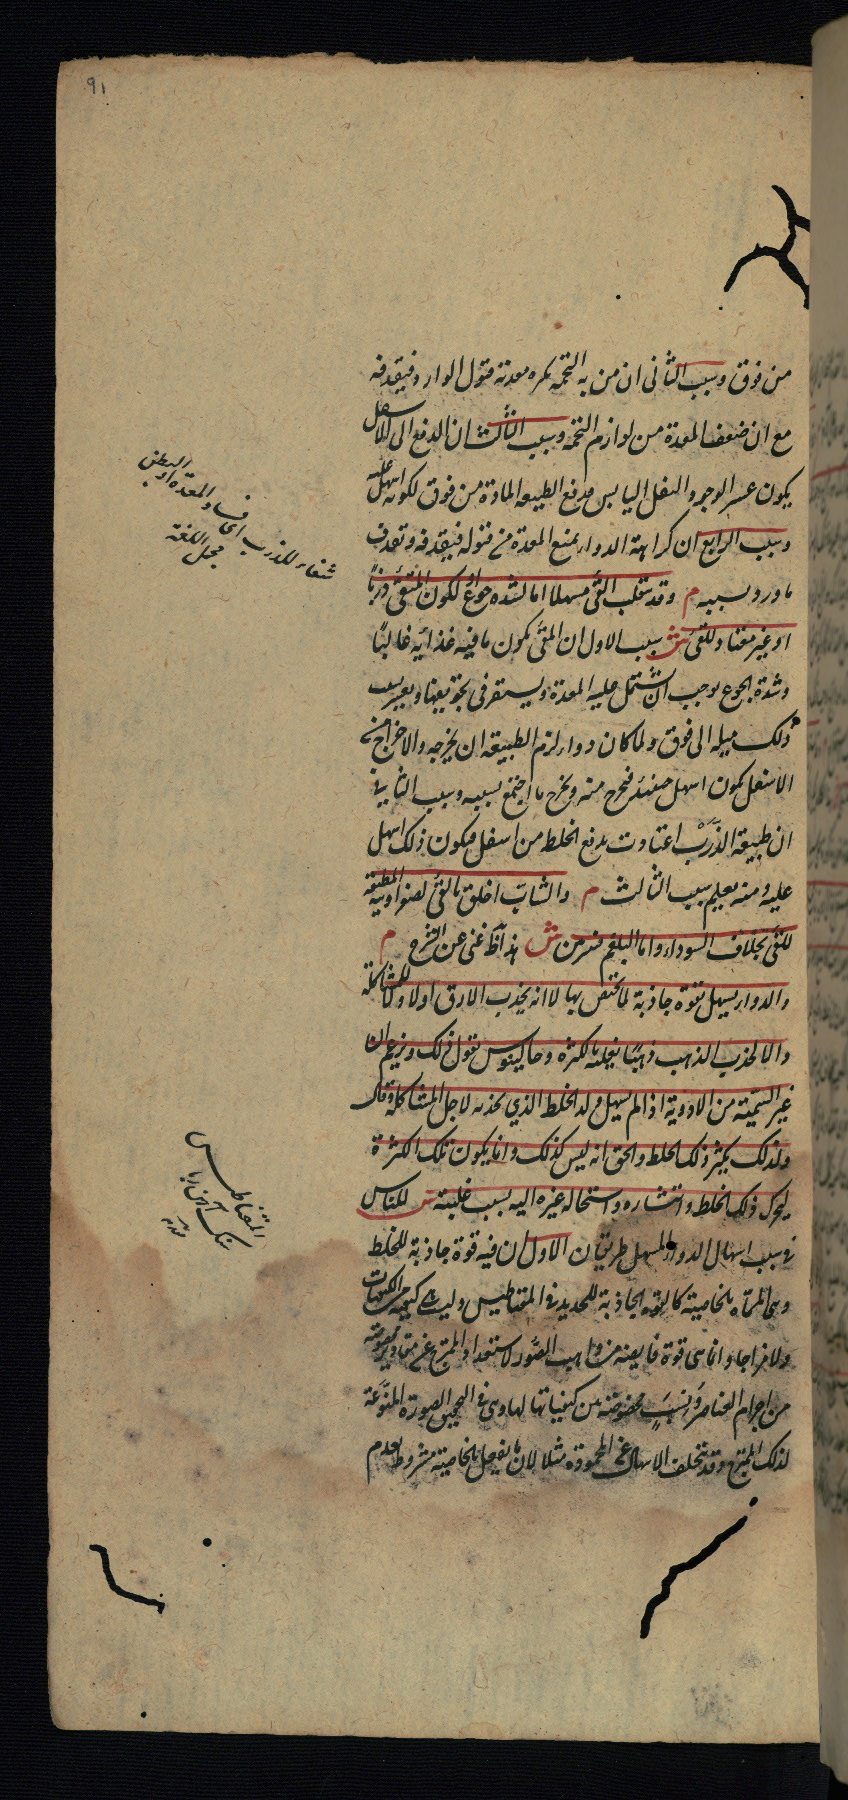 91
من فوق وسبب الثانى ان من به التخمة يكره معدته قبول الوارد فيقذفه
مع ان ضعف المعدة من لوازم التخمة وسبب الثالث ان الدفع الى الاسفل
يكون عسر الوجود الثفل اليابس فيدفع الطبيعه المادة من فوق لكونه اسهل عليه
وسبب الرابع ان كراهة الدواء يمنع المعدة من قبوله فيقذفه وتقذف
ما ورد بسببه م وقد ينقلب القئ مسهلا اما لشدة جوع او لكون المتقئ ذربا
او غير معتاد للقئ ش سبب الاول ان المقئ يكون ما فيه غذائيه غالبا
وشدة الجوع يوجب ان تشتمل عليه المعدة ويستقر فى تجويفها ويعسر بسبب
ذلك ميله الى فوق ولما كان دواء لزم الطبيعة ان يخرجه والاخراج من
الاسفل يكون اسهل حينئذ فيخرج منه ويخرج ما اجتمع بسببه وسبب الثانى
ان طبيعة الذرب اعتادت بدفع الخلط من اسفل فيكون ذلك اسهل
عليه ومنه يعلم سبب الثالث م والشاب اخلق بالقئ لصفراويته المطيعة
للقئ بخلاف السوداء واما البلغم فبين بين ش هذا غنى عن الشرح م
والدواء يسهل بقوة جاذبة لما يختص بها لا انه يجذب الارق اولا ولا للمشاكلة
والا لجذب الذهب ذهبا يغلبه بالكثرة وجالينوس يقول ذلك ويزعم ان
غير السمية من الادوية اذا لم يسهل ولد الخلط الذي يجذبه لاجل المشاكلة وقال
ولذلك يكثر ذلك الخلط والحق انه ليس كذلك وانما يكون تلك الكثرة
لتحرك ذلك الخلط وانتشاره واستحالة غيره اليه بسبب غلبته ش للناس
فى سبب اسهال الدواء المسهل طريقان الاول ان فيه قوة جاذبة للخلط
وهى المسماة بالخاصية كالقوة الجاذبة للحديد فى المغناطيس وليست كيفيه من الكيفيات
ولا مزاجا وانما هى قوة فايضة من واهب الصور لاستعداد الممتزج عن مقادير مخصوصة
من اجرام العناصر ونسب مخصوصة من كيفياتها لها وهى فى التحقيق الصورة المنوعة
لذلك الممتزج وقد يتخلف الاسهال عن المحمودة مثلا لان ما يفعل بالخاصية مشروط بعدم
شفاء للذرب اى فساد المعدة او البطن
مجمل اللغة
المغناطيس
سنك آهن ربا